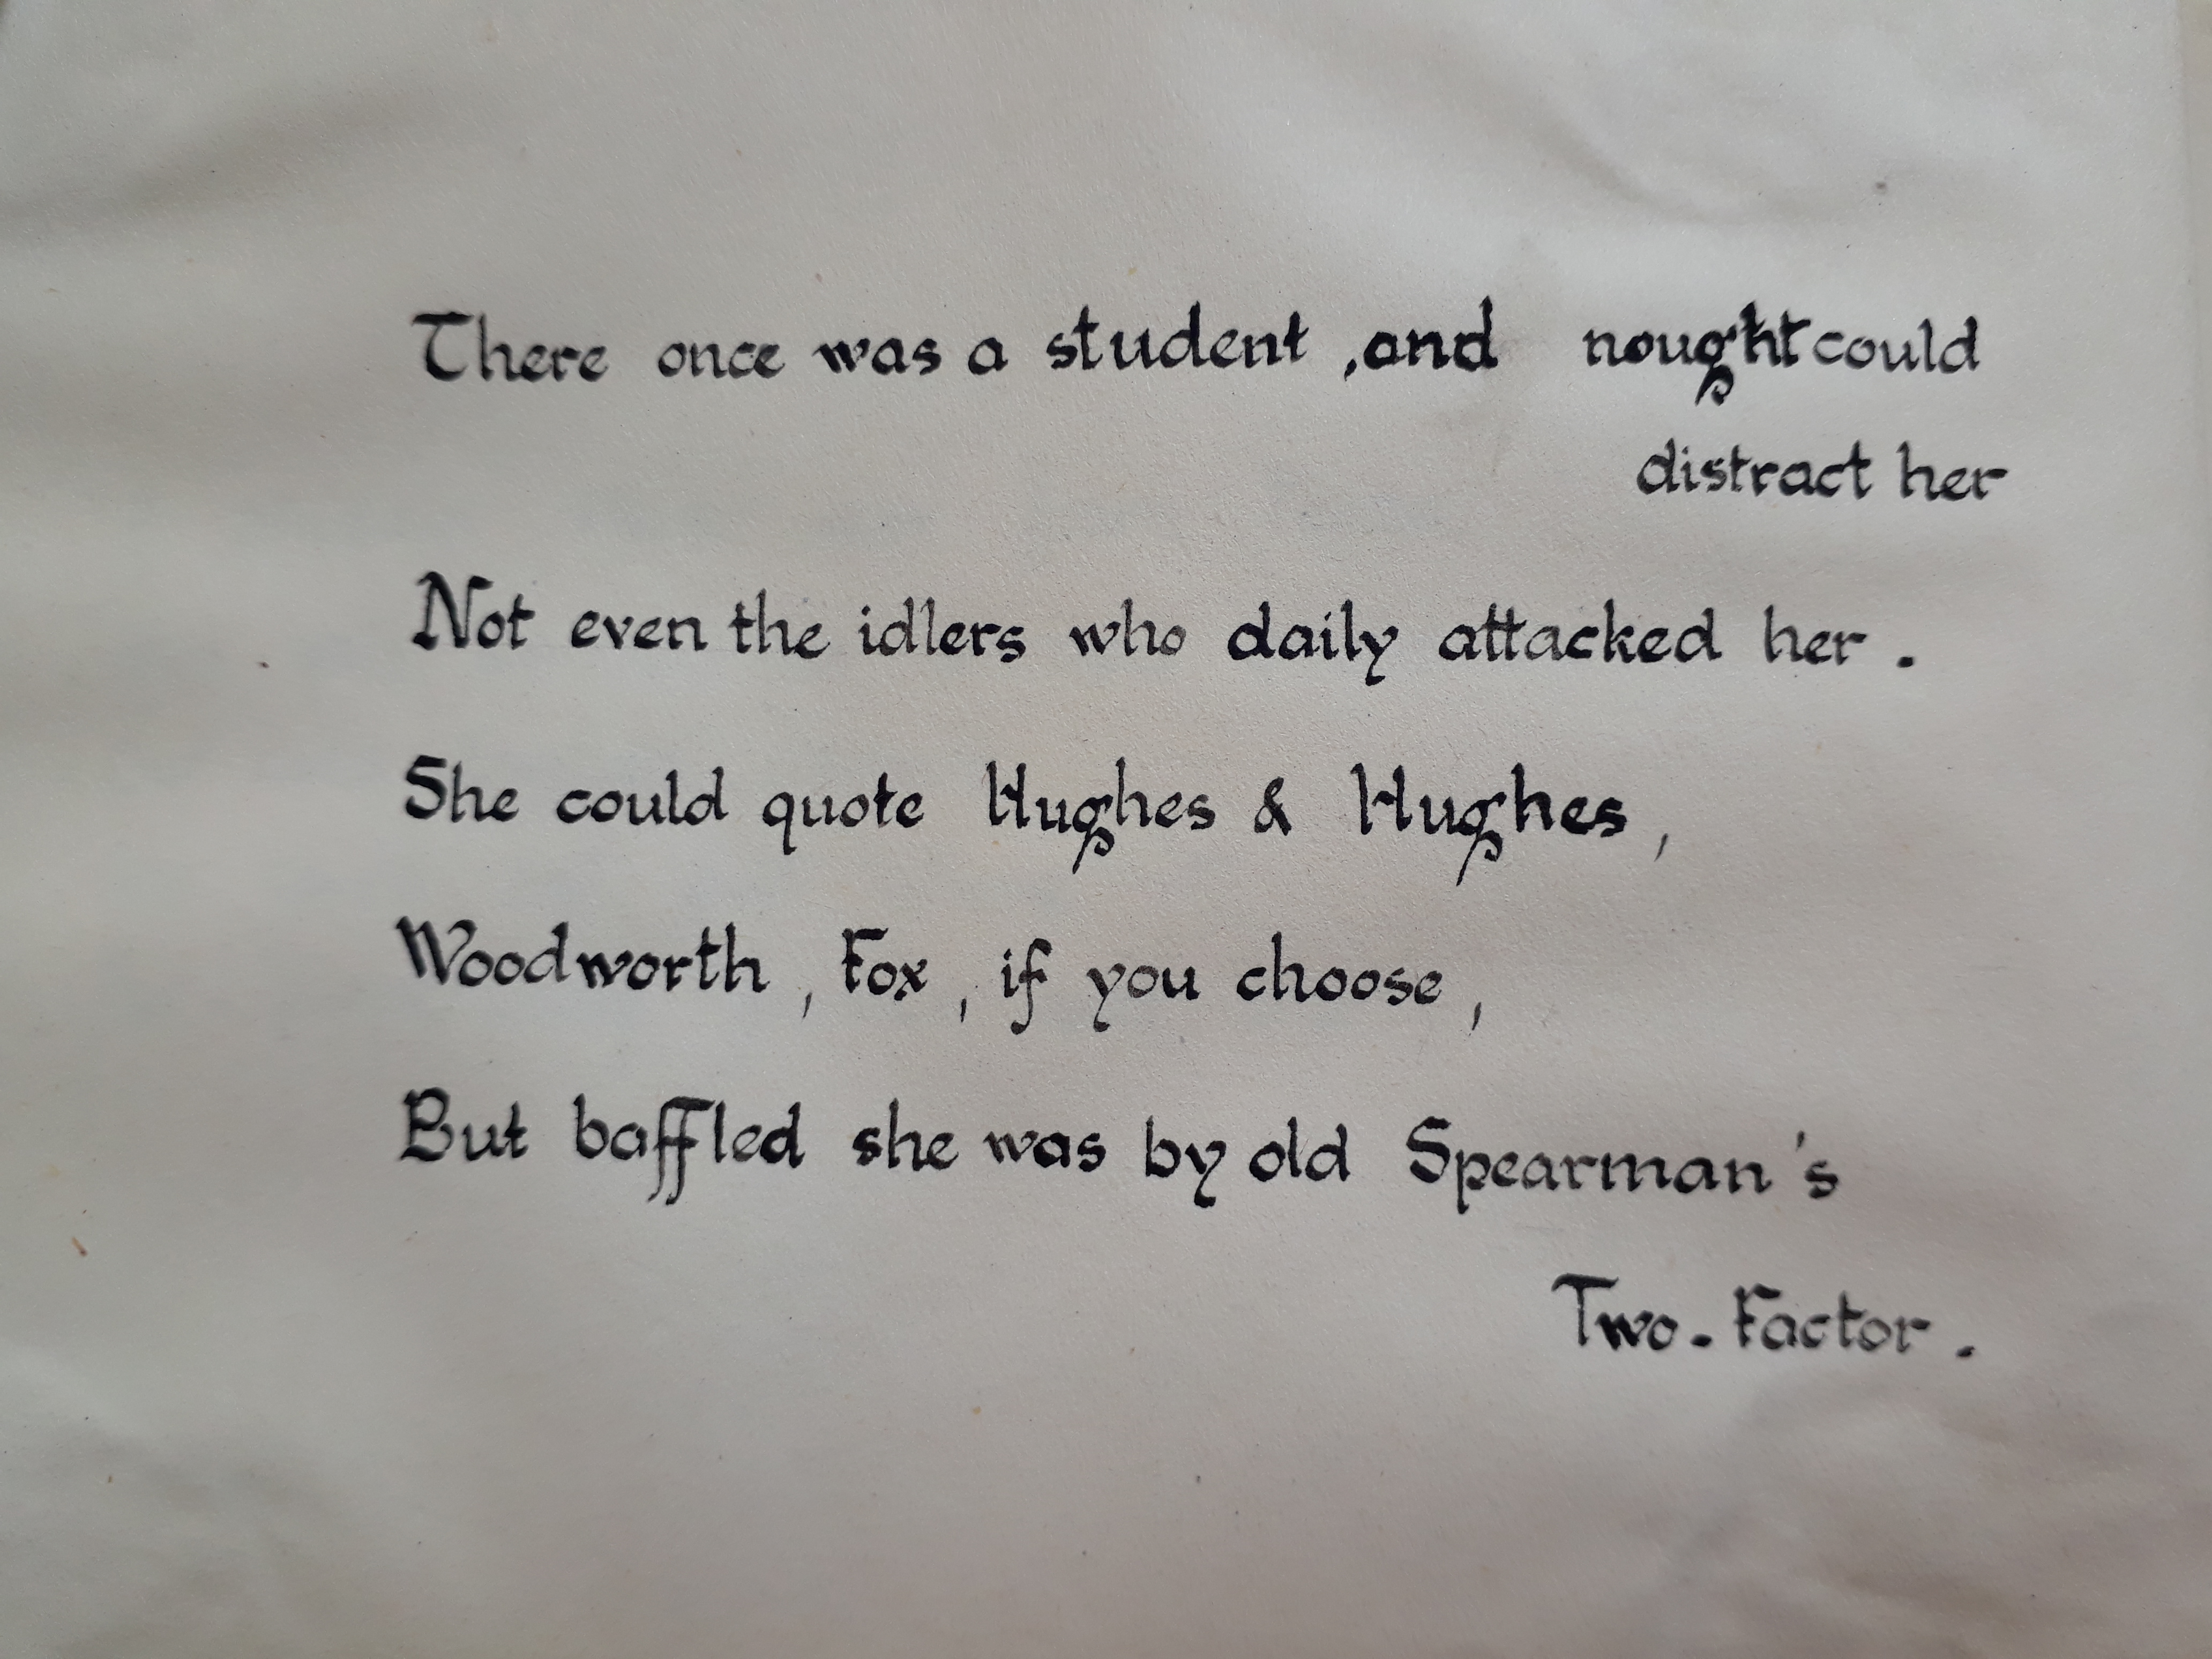 There once was a student, and nought could
distract her
Not even the idlers who daily attacked her.
She could quote Hughes & Hughes,
Woodworth, Fox, if you choose,
But baffled she was by old Spearman's
Two-Factor.